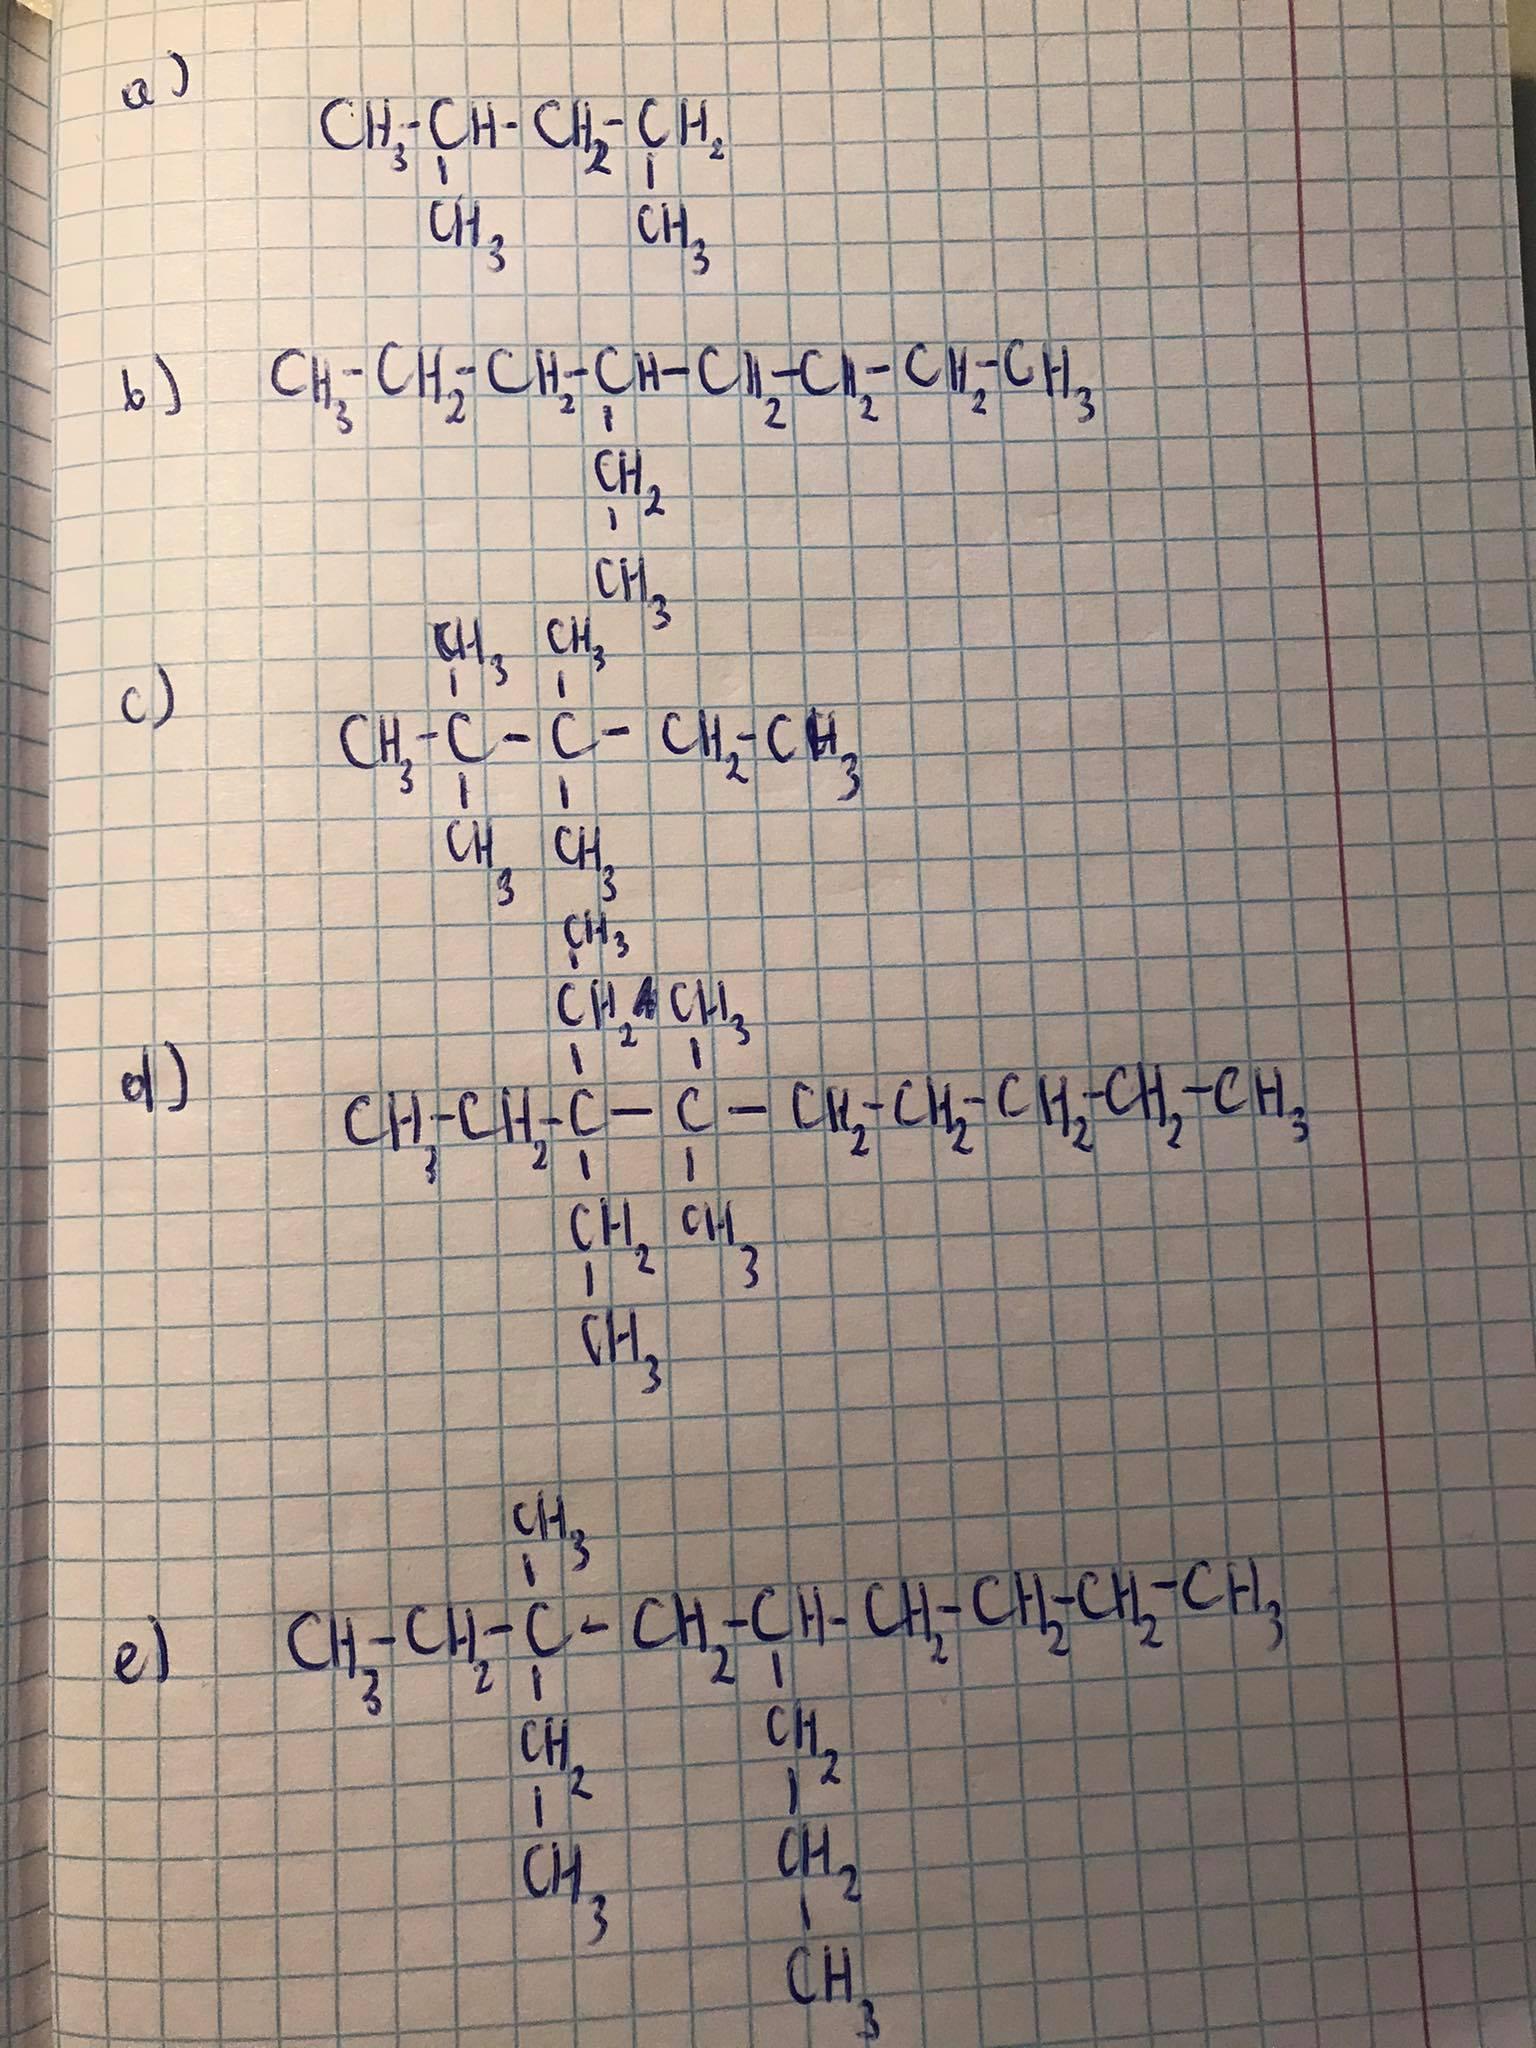 a)
CH₃-CH-CH₂-CH₂
CH₃ CH₃
b) CH₃-CH₂-CH₂-CH-CH₂-CH₂-CH₂-CH₃
CH₂
CH₃
CH₃ CH₃
c)
CH₃-C-C-CH₂-CH₃
CH₃ CH₃
CH₃
CH₂ CH₃
d) CH₃-CH₂-C-C-CH₂-CH₂-CH₂-CH₂-CH₃
CH₂ CH₃
CH₃
CH₃
e) CH₃-CH₂-C-CH₂-CH-CH₂-CH₂-CH₂-CH₃
CH₂ CH₂
CH₃ CH₂
CH₃